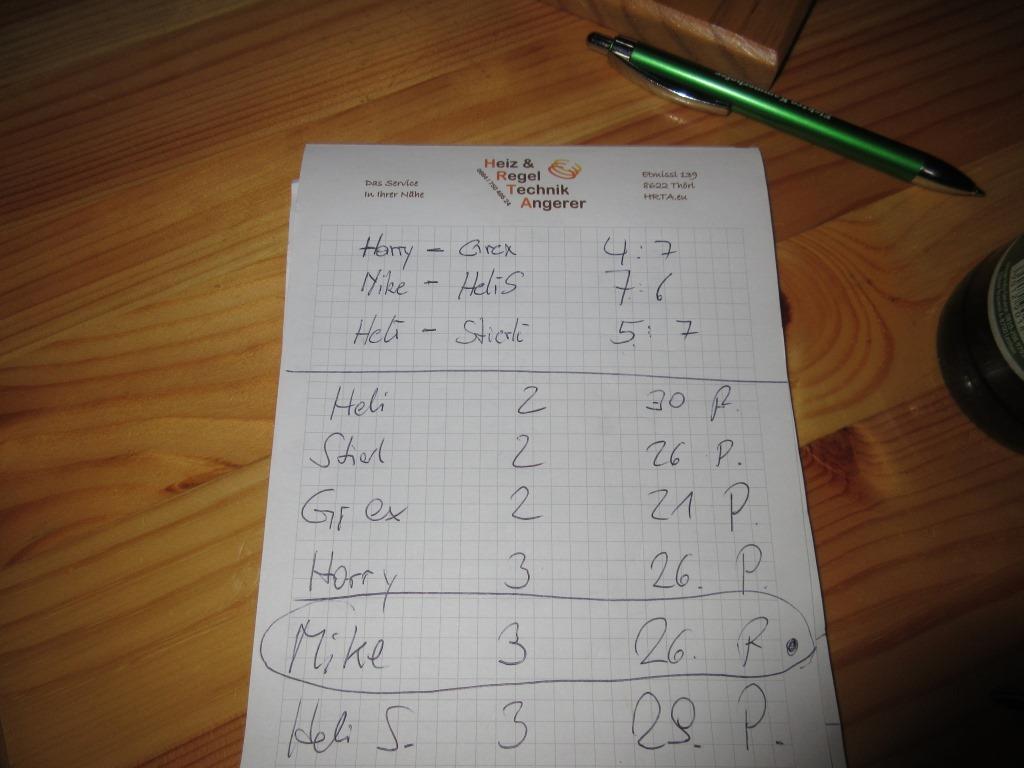 Heiz &
Regel
Technik
Angerer
Das Service
in Ihrer Nähe
Etmissl 139
8622 Thörl
HRTA.eu
Harry - Grex 4:7
Mike - Heli S 7:6
Heli - Stierli 5:7
Heli 2 30 P.
Stierl 2 26 P.
Grex 2 21 P.
Harry 3 26. P.
Mike 3 26. P.
Heli S. 3 29. P.